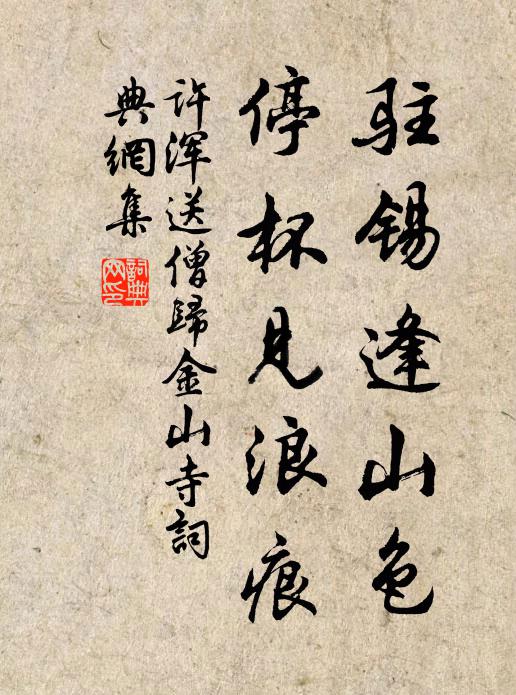 驻锡逢山色
停杯见浪痕
许浑送僧歸金山寺詞
典網集
詞典
网印